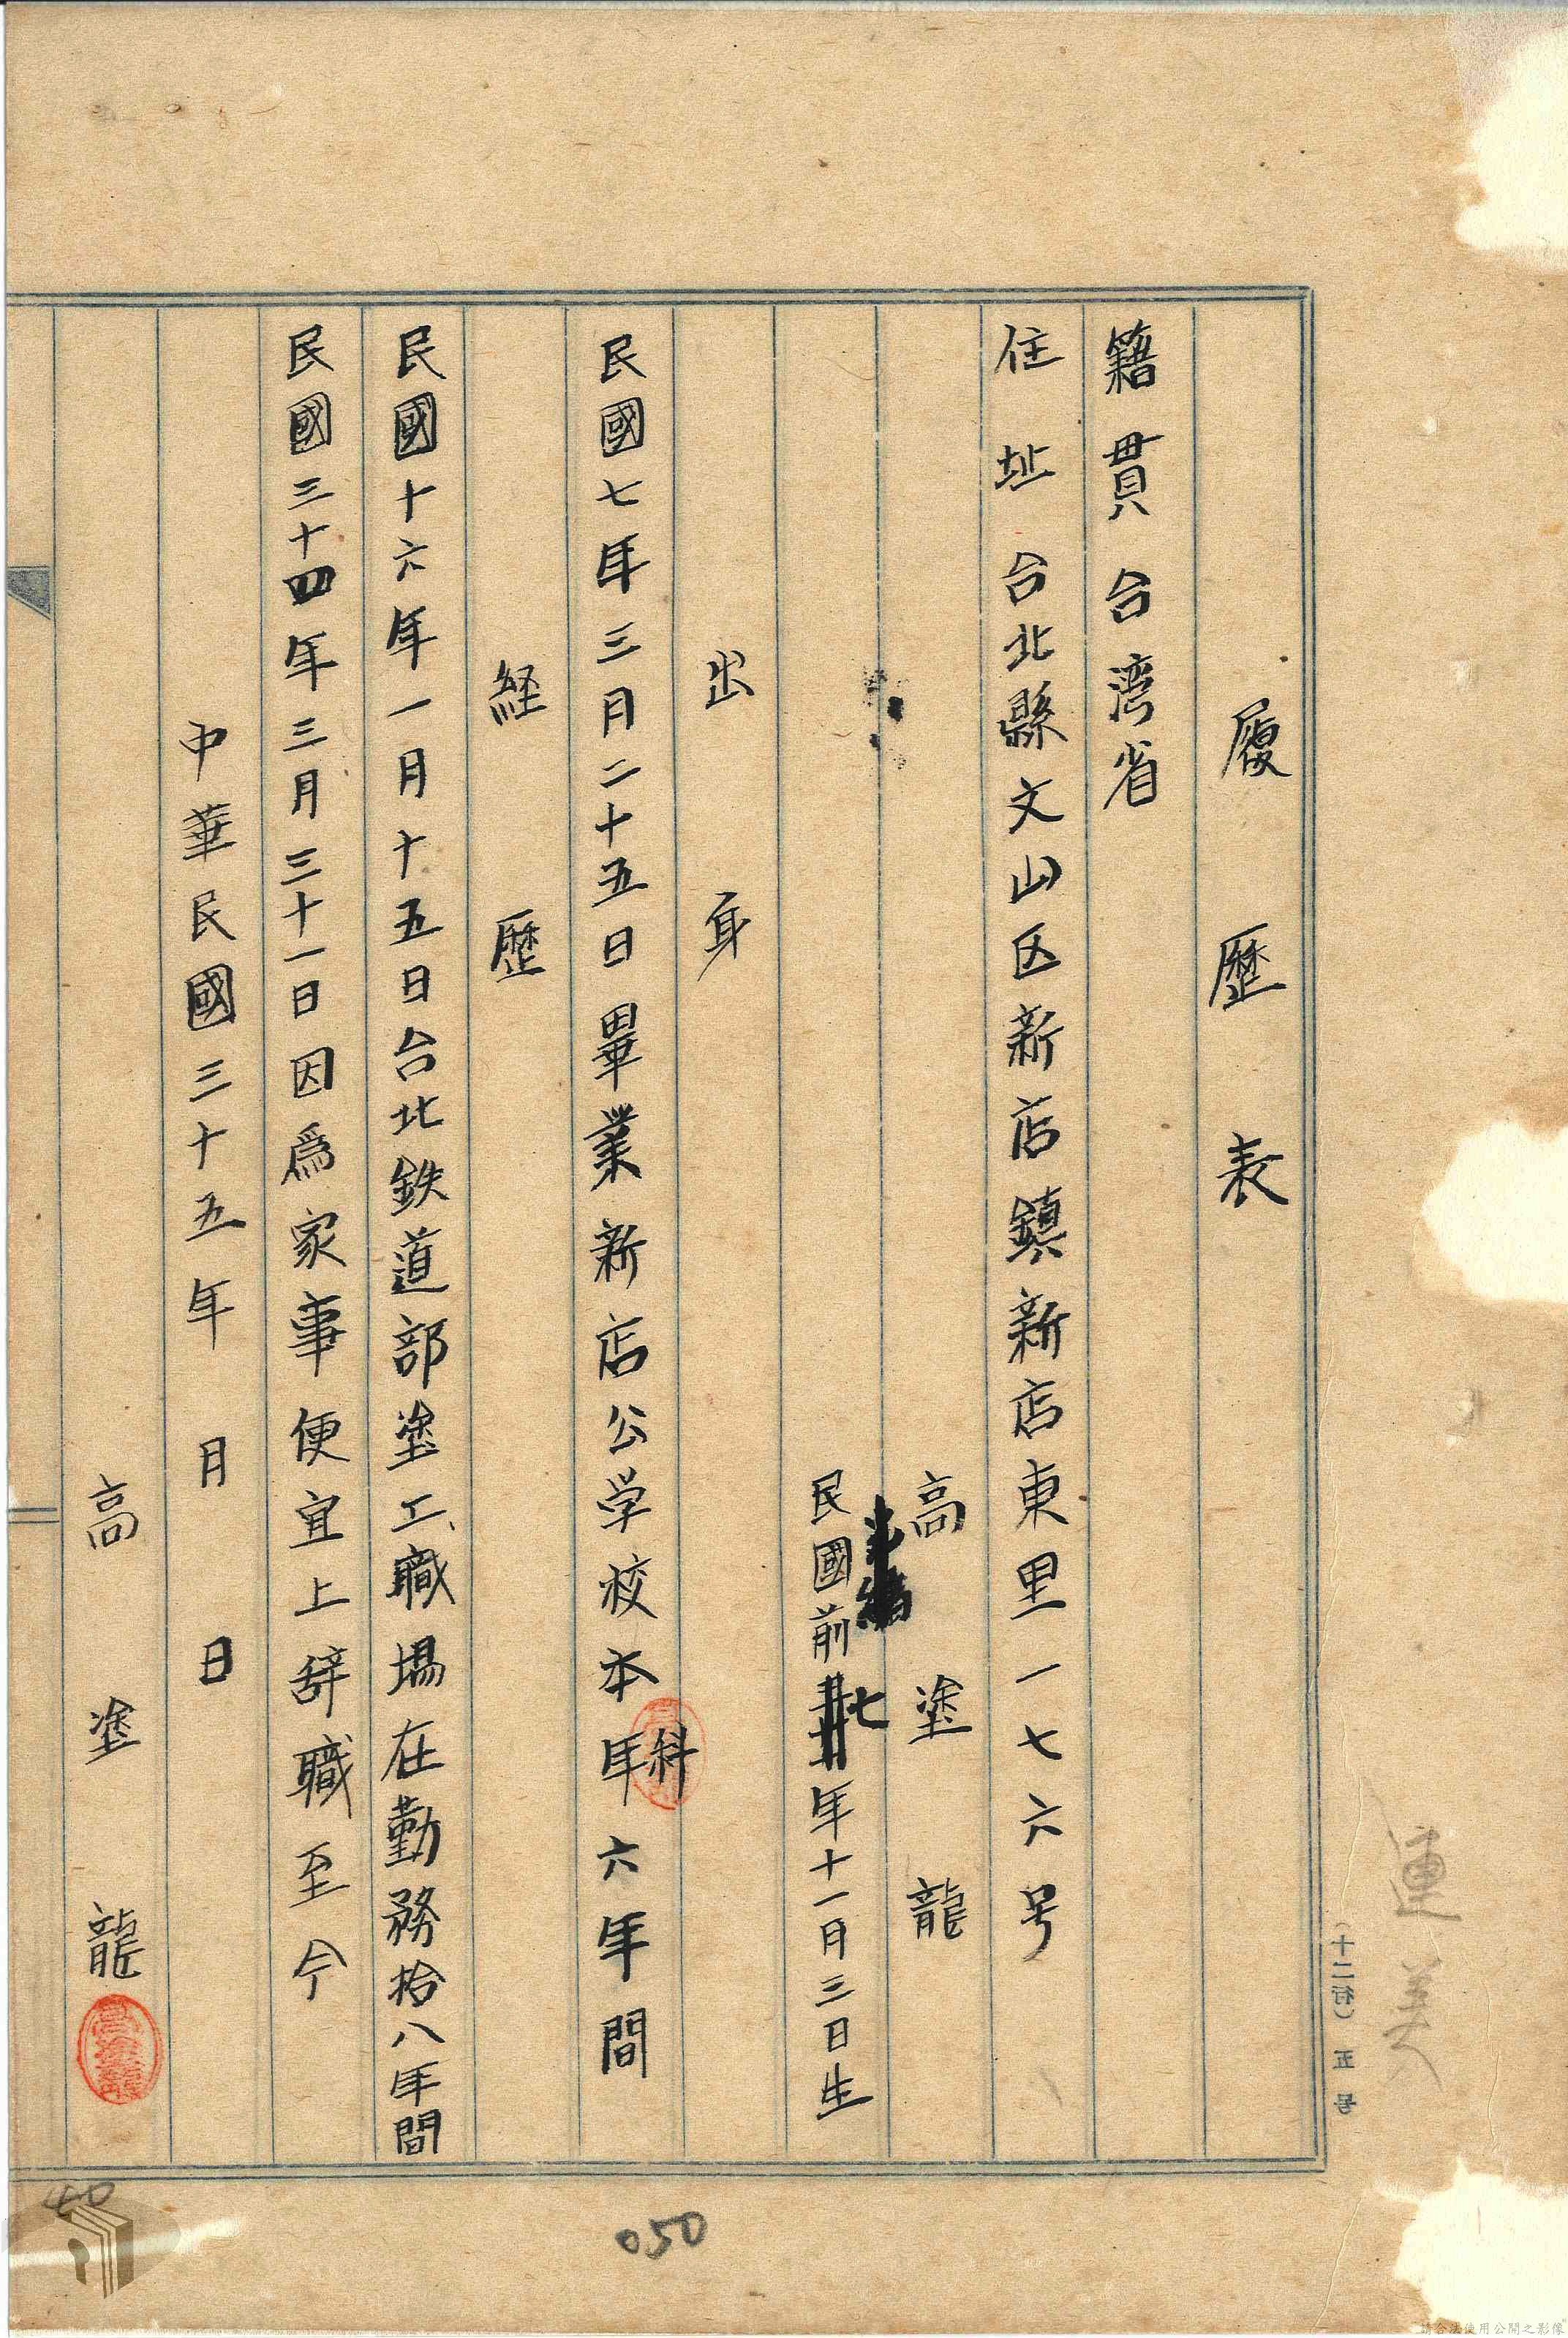 履歷表
籍貫台湾省
住址台北縣文山区新店鎮新店東里一七六号
高塗龍
民國前七年十一月三日生
出身
民國七年三月二十五日畢業新店公学校本科年六年間
経歷
民國十六年一月十五日台北鉄道部塗工職場在勤務拾八年間
民國三十四年三月三十一日因為家事便宜上辞職至今
中華民國三十五年 月 日
高塗龍
(十二行) 五号
050
40
請合法使用公開之影像